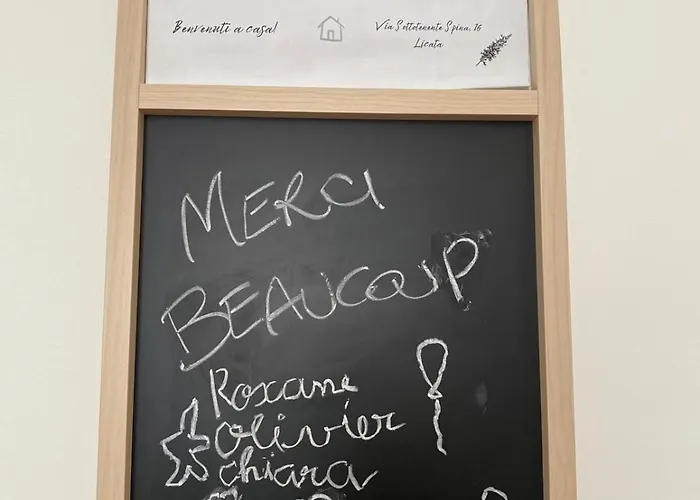 Benvenuti a casa!
Via Sottotenente Spina, 16
Licata
MERCI
BEAUCOUP
Roxane
Olivier
chiara